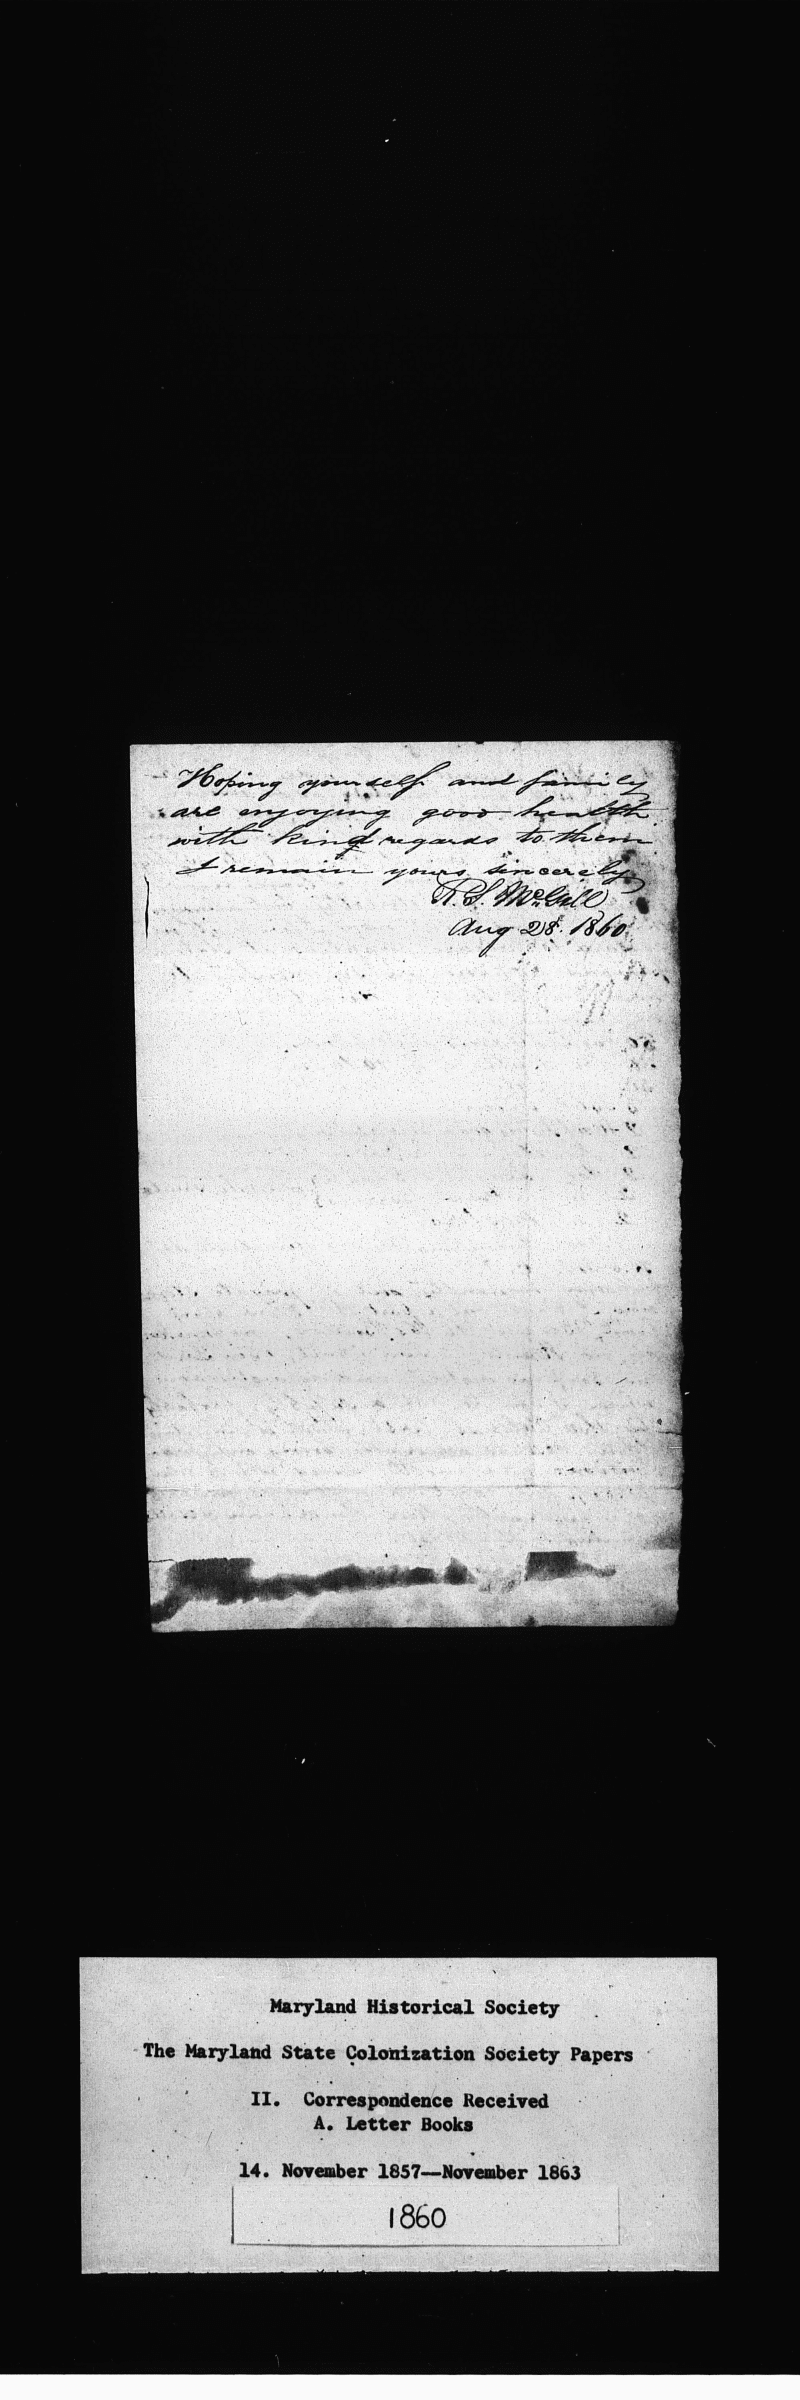 Hoping yourself and family
are enjoying good health
with kind regards to them
I remain yours sincerely
R. S. McGill
Aug 28. 1860
Maryland Historical Society
The Maryland State Colonization Society Papers
II. Correspondence Received
A. Letter Books
14. November 1857—November 1863
1860